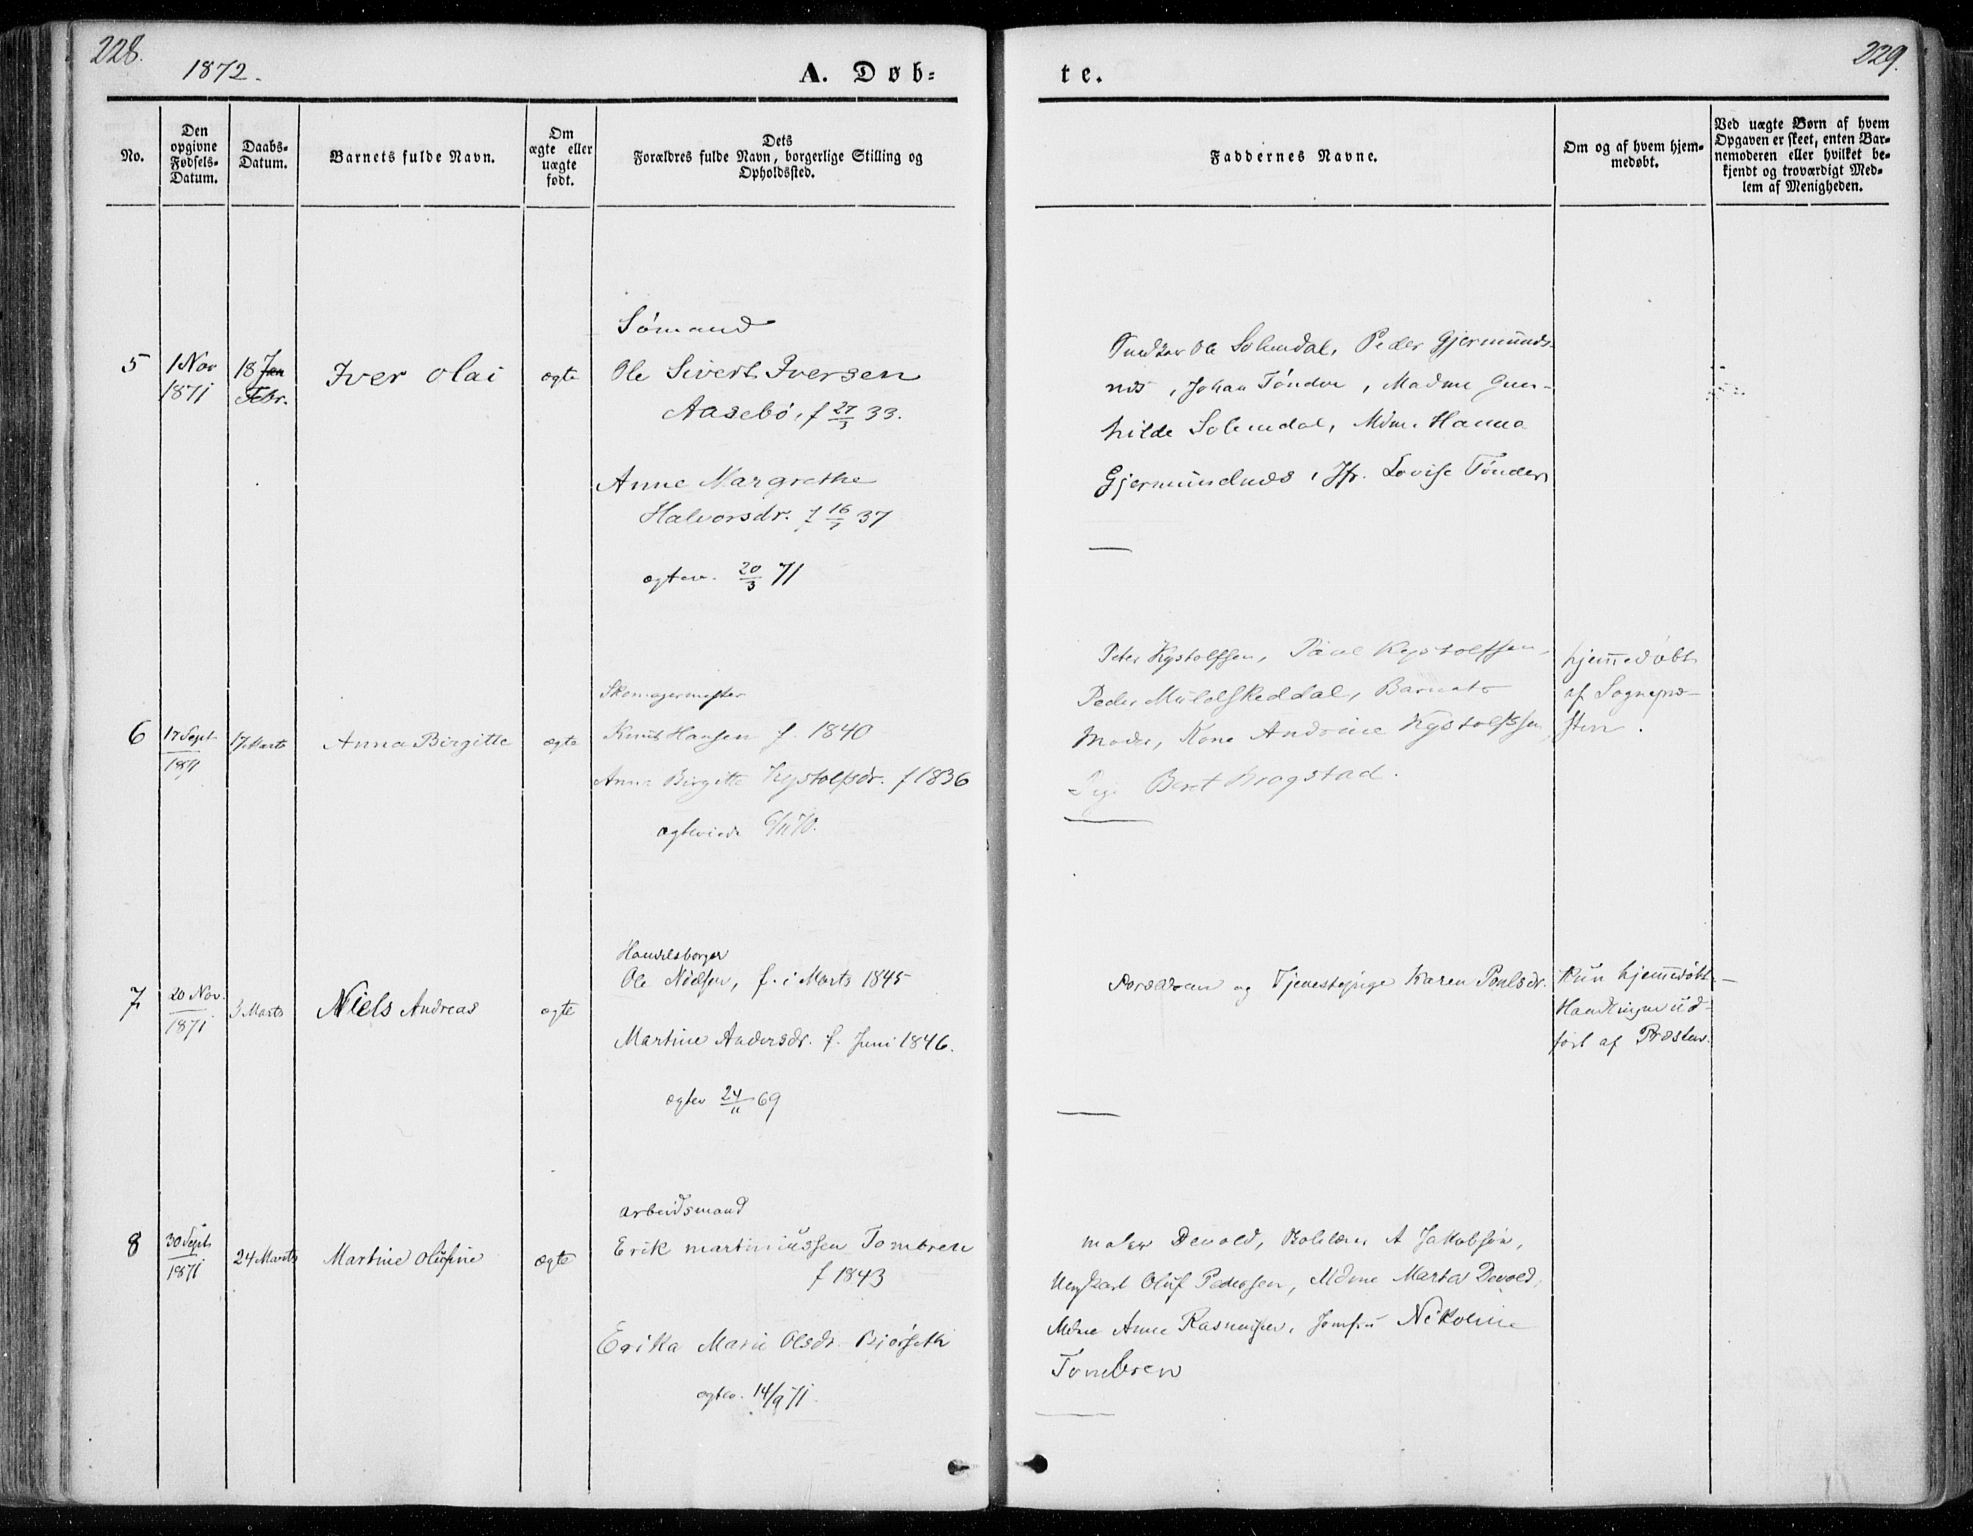 228.
1872.
A. Døb-
te.
229.
No.
Den
opgivne
Fødsels-
Datum.
Daabs-
Datum.
Barnets fulde Navn.
Om
ægte eller
uægte
født.
Dets
Forældres fulde Navn, borgerlige Stilling og
Opholdssted.
Faddernes Navne.
Om og af hvem hjem-
medøbt.
Ved uægte Børn af hvem
Opgaven er skeet, enten Bar-
nemoderen eller hvilket be-
kjendt og troværdigt Med-
lem af Menigheden.
5
1 Nov
1871
18 Jan
Febr.
Iver Olai
ægte
Sømand
Ole Sivert Iversen
Aasebø, f 27/3 33.
Anne Margrethe
Halvorsdr. f 16/7 37
ægtev. 20/3 71
Ole Solemdal, Peder Gjermunds-
nes, Johan Tønder, Madme Gun-
hilde Solemdal, Mdm. Hanna
Gjermundnæs, Jfr. Lovise Tønder,
6
17 Sept
1871
17 Marts
Anna Birgitte
ægte
Skomagermester
Knut Hansen f. 1840
Anne Birgitte Kystolfsdr. f 1836
ægteviede 6/11 70.
Peter Kystolfsen, Paul Kystolfsen,
Peder Mülolskeddal, Barnets
Moder, Kone Andrine Kystolfsen,
Pige Beret Brogstad.
hjemmedøbt
af Sognepræ-
sten.
7
20 Nov.
1871
3 Marts
Niels Andreas
ægte
Handelsborger
Ole Nielsen, f. i Marts 1845
Martine Andersdr. f. Juni 1846.
ægtev 24/11 69
Forældrene og Tjenestepige Karen Poulsdr.
Kun hjemmedøbt-
Handlingen ud-
ført af Præsten.
8
30 Sept
1871
24 Marts
Martine Olufine
ægte
Arbeidsmand
Erik Martiniussen Tombren
f 1843
Erika Marie Olsdr. Bjørseth
ægtev. 14/9 71.
Maler Devold, A Jakobsøn,
Ungkarl Oluf Pedersen, Mdme Marta Devold,
Mdme Anne Rasmussen, Jomfru Nikoline
Tombren